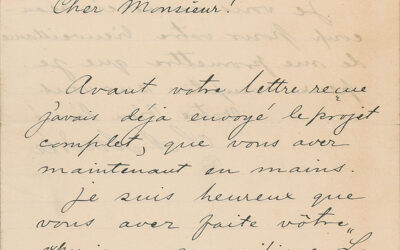 Cher Monsieur!
Avant votre lettre reçue
j'avais déjà envoyé le projet
complet, que vous aver
maintenant en mains.
Je suis heureux que
vous aver faite vôtre